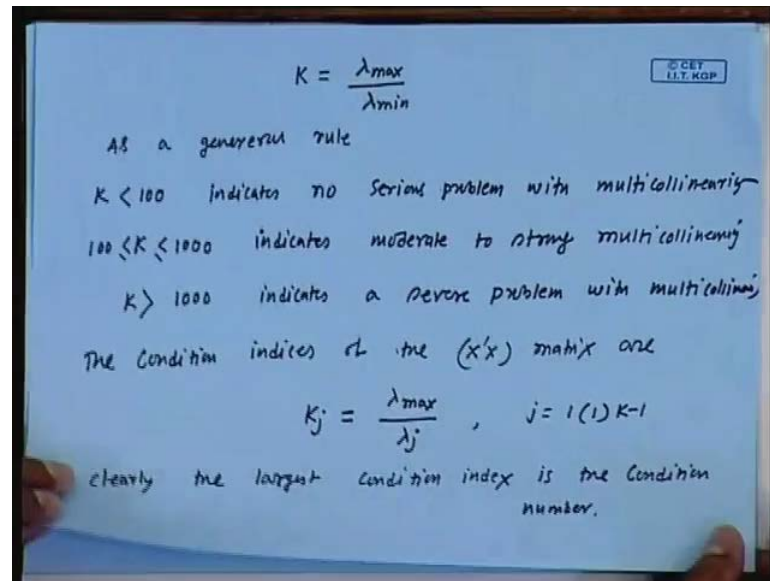 K = λmax / λmin
© CET
I.I.T. KGP
As a genererul rule
K < 100 indicates no serious problem with multicollinearity
100 ≤ K ≤ 1000 indicates moderate to strong multicollinearity
K > 1000 indicates a severe problem with multicollinearity
The condition indices of the (x'x) matrix are
Kj = λmax / λj , j = 1(1) K-1
clearly the largest condition index is the condition
number.